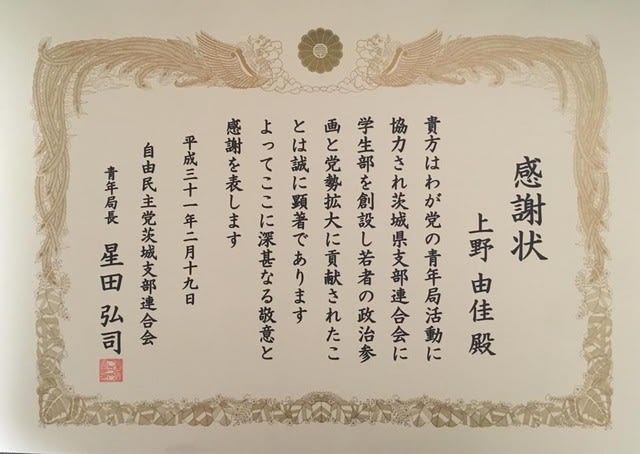 感謝状
上野 由佳 殿
貴方はわが党の青年局活動に
協力され茨城県支部連合会に
学生部を創設し若者の政治参
画と党勢拡大に貢献されたこ
とは誠に顕著であります
よってここに深甚なる敬意と
感謝を表します
平成三十一年二月十九日
自由民主党茨城支部連合会
青年局長 星田 弘司